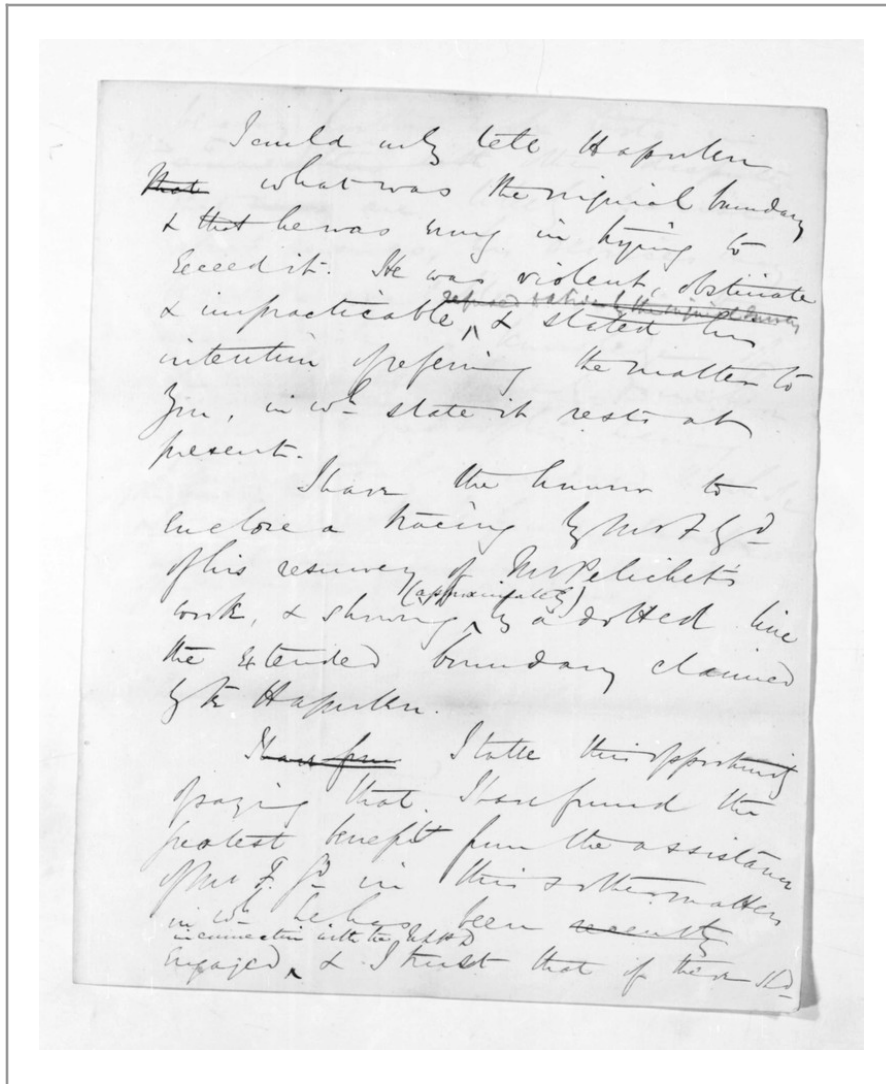 I could only tell Hapuku
that what was the original boundary
& that he was wrong in trying to
exceed it. He was violent, obstinate
refused to abide by the original survey
& impracticable, & stated his
intention of referring the matter to
you, in wh. state it rests at
present.
I have the honour to
enclose a tracing by Mr F. Gd.
of his resurvey of Mr Pelichet's
(approximately)
work, & showing by a dotted line
the extended boundary claimed
by Te Hapuku.
I have from I take this opportunity
of saying that I have found the
greatest benefit from the assistance
of Mr F. Gd. in this & other matters
in wh. he has been recently
in connection with the
engaged, & I trust that if there shd.